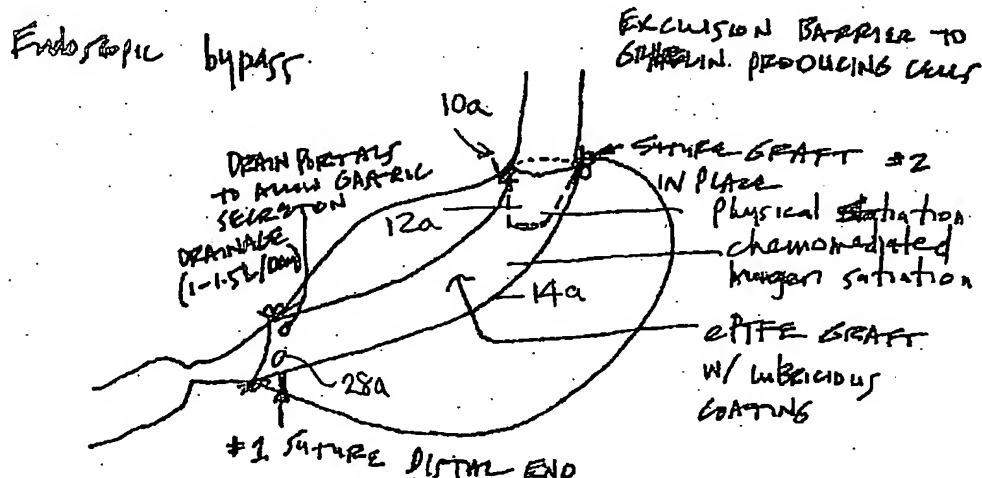 Endoscopic bypass.
EXCLUSION BARRIER TO
GHRELIN. PRODUCING CELLS
10a
DRAIN PORTALS
TO ALLOW GASTRIC
SECRETION
DRAINAGE
(1-1.5L/Day)
12a
SUTURE GRAFT #2
IN PLACE
Physical Satiation
chemomediated
hunger satiation
14a
ePTFE GRAFT
W/ LUBRICIOUS
COATING
28a
#1 SUTURE DISTAL END